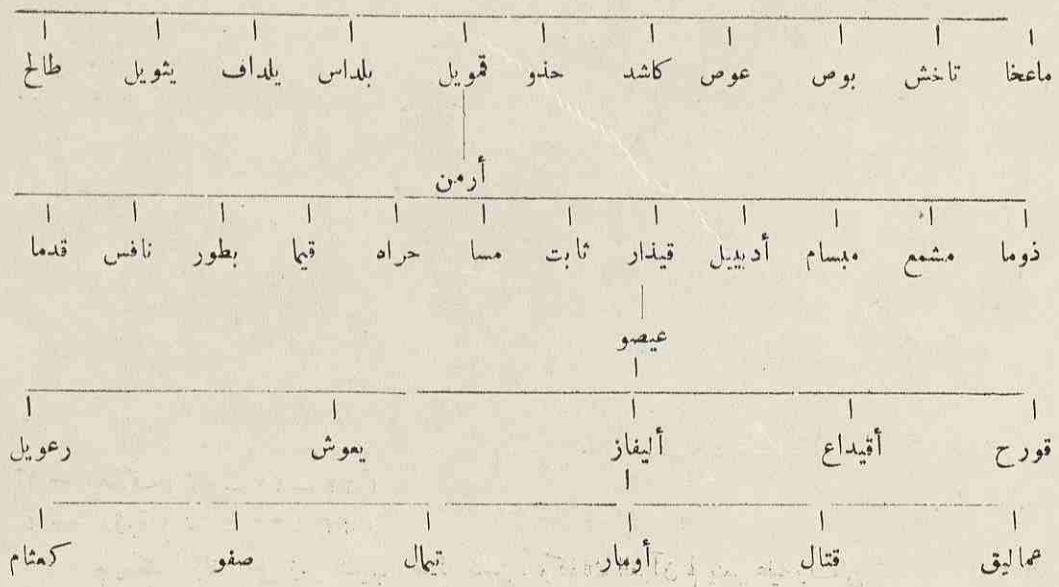 ماعخا تاخش بوص عوص كاشد حذو قمويل بلداس يلداف يثويل طالح
أرمن
ذوما مشمع مبسام أدبييل قيذار ثابت مسا حراه قيما بطور نافس قدما
عيصو
قورح أقيداع أليفاز يعوش رعويل
عماليق قتال أومار تيمال صفو كعثام